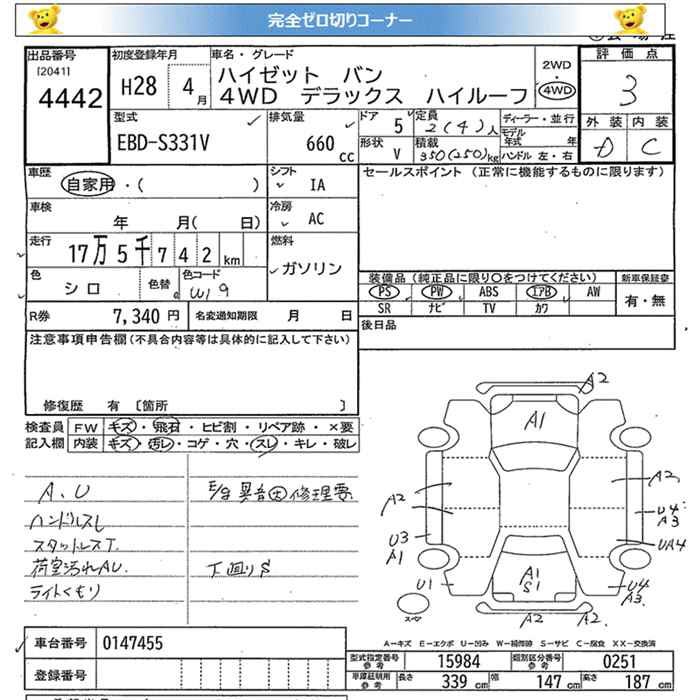 完全ゼロ切りコーナー
出品番号
[2041]
4442
初度登録年月
H28 4月
車名・グレード
ハイゼット バン
4WD デラックス ハイルーフ
2WD
・
4WD
評価点
3
外装 内装
D C
型式
EBD-S331V
排気量
660 cc
ドア 5
形状 V
定員 2(4)人
積載 350(250)kg
ディーラー・並行
モデル年式 年
ハンドル 左・右
車歴
自家用・( )
シフト IA
セールスポイント (正常に機能するものに限ります)
車検
年 月( 日)
冷房 AC
走行
17万5千742km
燃料
ガソリン
色 シロ
色替
色コード W19
装備品(純正品に限り○をつけてください)
新車保証書
PS PW ABS エアB AW
有・無
SR ナビ TV カワ
R券 7,340円
名変通知期限 月 日
後日品
注意事項申告欄(不具合内容等は具体的に記入して下さい)
修復歴 有 〔箇所 〕
検査員
記入欄
FW キズ・飛石・ヒビ割・リペア跡・×要
内装 キズ・汚レ・コゲ・穴・スレ・キレ・破レ
A、U
ハンドルスレ
スタットレスT.
荷室汚れAU.
ライトくもり
下廻りS
A2
A1
A2
A2
U4
A3
U3
A1
UA4
U1
A1
S1
U4
A3.
スペア
A2
A2
A=キズ E=エクボ U=凹み W=補修跡 S=サビ C=腐食 XX=交換済
車台番号 0147455
登録番号
型式指定番号 参考 15984
類別区分番号 参考 0251
車庫証明用 参考 長さ 339cm 幅 147cm 高さ 187cm